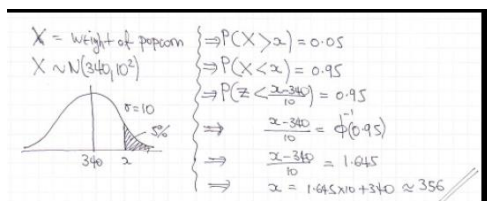 X = weight of popcorn
X ~ N(340, 10²)
σ=10
5%
340 x
⇒ P(X > x) = 0.05
⇒ P(X < x) = 0.95
⇒ P(Z < x-340/10) = 0.95
⇒ x-340/10 = ϕ⁻¹(0.95)
⇒ x-340/10 = 1.645
⇒ x = 1.645x10 + 340 ≈ 356